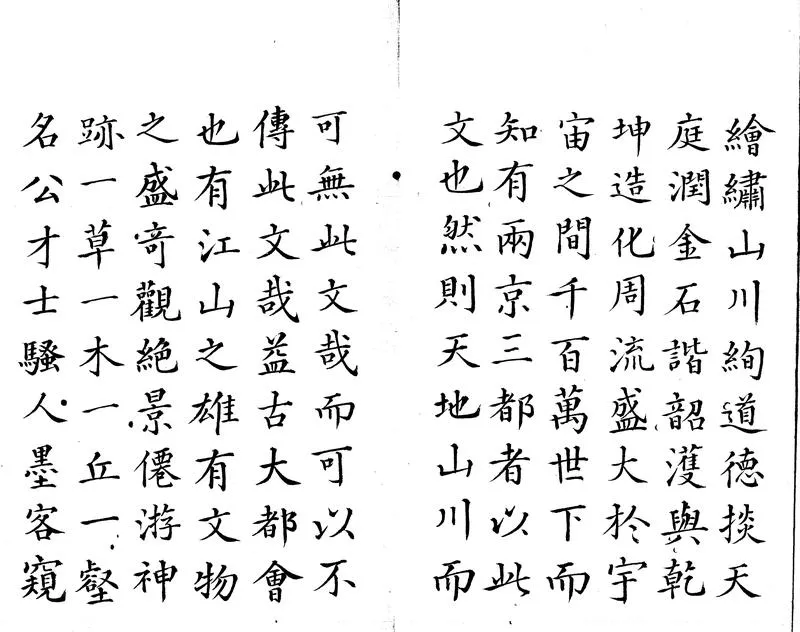 繪繡山川絢道德掞天
庭潤金石諧韶濩與乾
坤造化周流盛大於宇
宙之間千百萬世下而
知有兩京三都者以此
文也然則天地山川而
可無此文哉而可以不
傳此文哉益古大都會
也有江山之雄有文物
之盛奇觀絕景僊游神
跡一草一木一丘一壑
名公才士騷人墨客窺